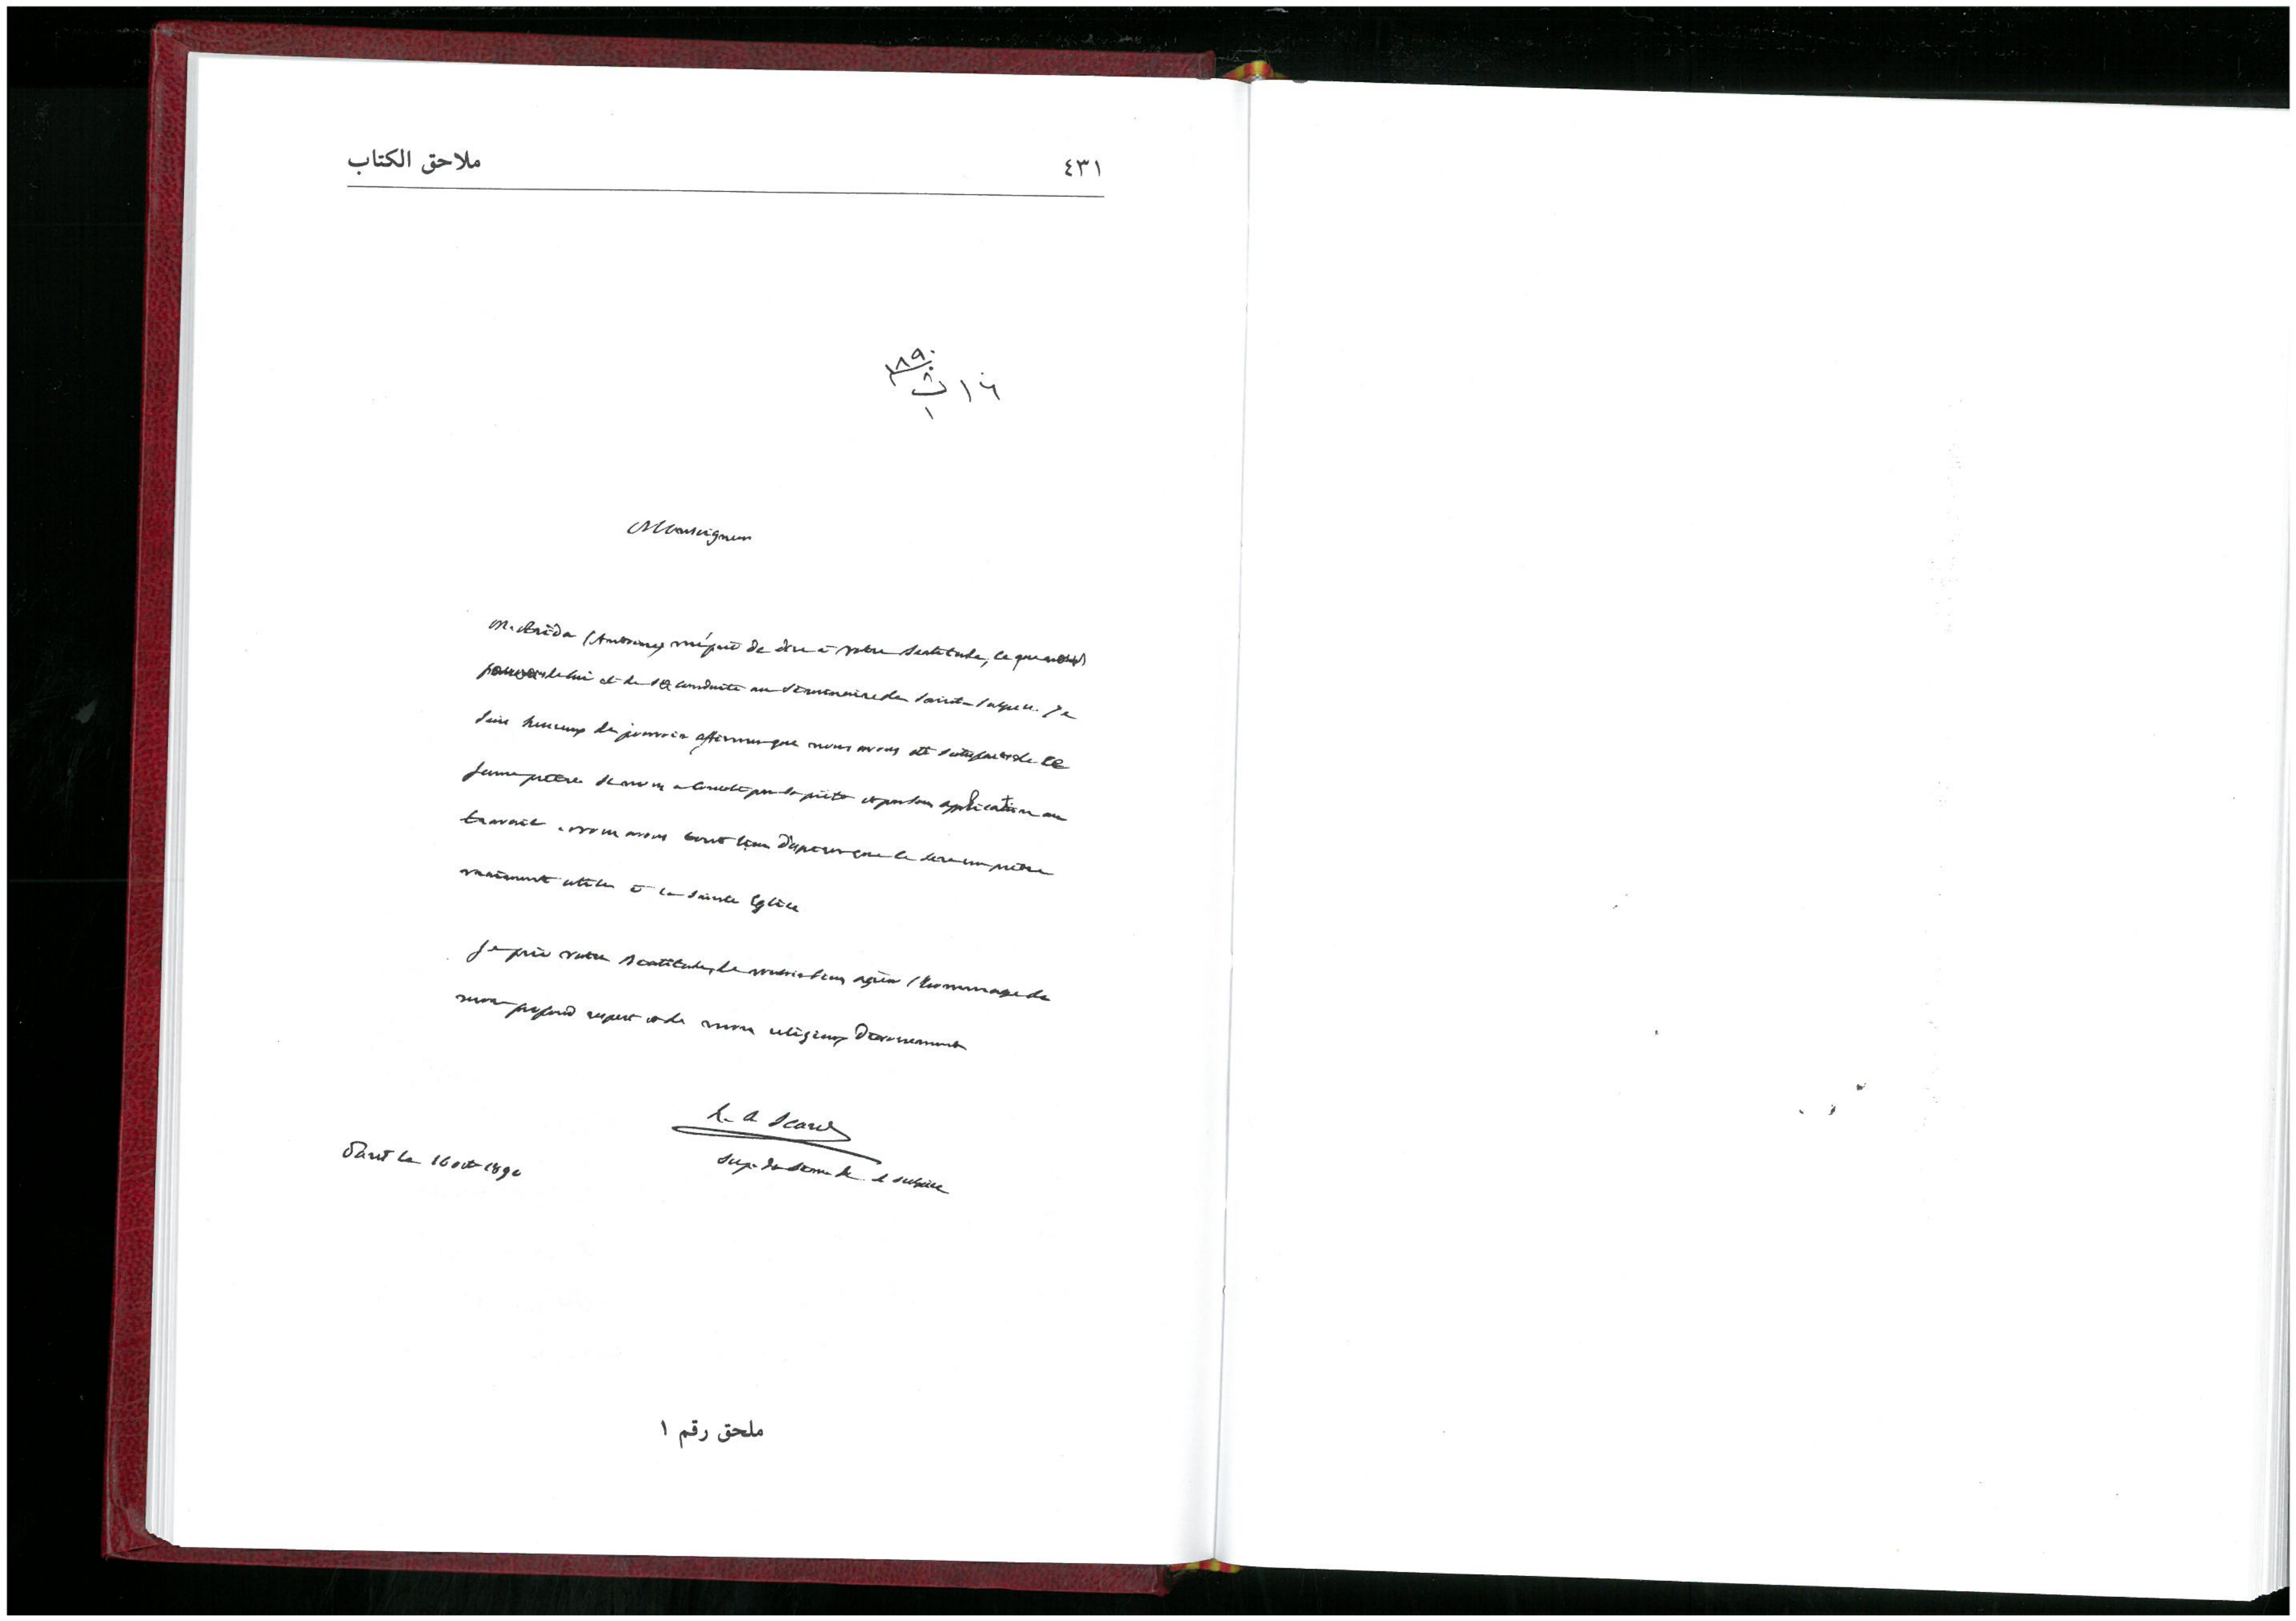 ملاحق الكتاب ٤٣١
Monseigneur
M. Arida (Antoine) me prie de dire à votre Béatitude, ce que nous
pensons de lui et de sa conduite au Séminaire de Saint-Sulpice. Je
suis heureux de pouvoir affirmer que nous avons été satisfaits de ce
jeune prêtre par sa piété et par son application au
travail. nous avons tout lieu d'espérer que ce sera un prêtre
vraiment utile à la Sainte Eglise
Je prie votre Béatitude, de vouloir bien agréer l'hommage de
mon profond respect et de mon religieux dévouement
Paris le 16 1890
Sup. du Sém. de S Sulpice
ملحق رقم ١